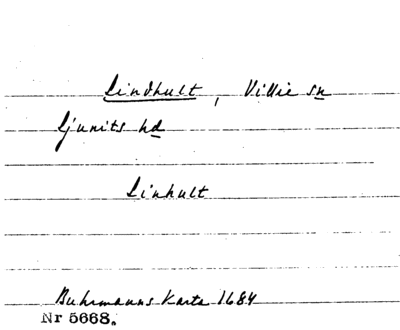 Lindhult, Villie sn
Ljunits hd
Linhult
Buhrmanns Karta 1684
Nr 5668.